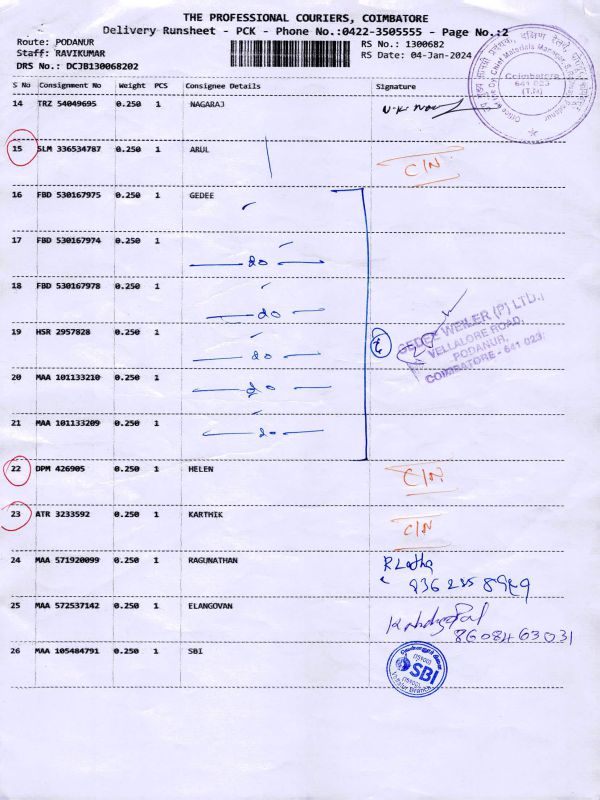 THE PROFESSIONAL COURIERS, COIMBATORE
Delivery Runsheet - PCK - Phone No.:0422-3505555 - Page No.:2
Route: PODANUR
RS No.: 1300682
Staff: RAVIKUMAR
RS Date: 04-Jan-2024
DRS No.: DCJB130068202
S No Consignment No Weight PCS Consignee Details Signature
14 TRZ 54049695 0.250 1 NAGARAJ
15 SLM 336534787 0.250 1 ARUL C/N
16 FBD 530167975 0.250 1 GEDEE
17 FBD 530167974 0.250 1
18 FBD 530167978 0.250 1
19 HSR 2957828 0.250 1
20 MAA 101133210 0.250 1
21 MAA 101133209 0.250 1
GEDEE WEILER (P) LTD.,
VELLALORE ROAD,
PODANUR,
COIMBATORE - 641 023.
22 DPM 426905 0.250 1 HELEN C/N
23 ATR 3233592 0.250 1 KARTHIK C/N
24 MAA 571920099 0.250 1 RAGUNATHAN R Latha
25 MAA 572537142 0.250 1 ELANGOVAN
8608463031
26 MAA 105484791 0.250 1 SBI
SBI
Coimbatore
641 023
(T.N)